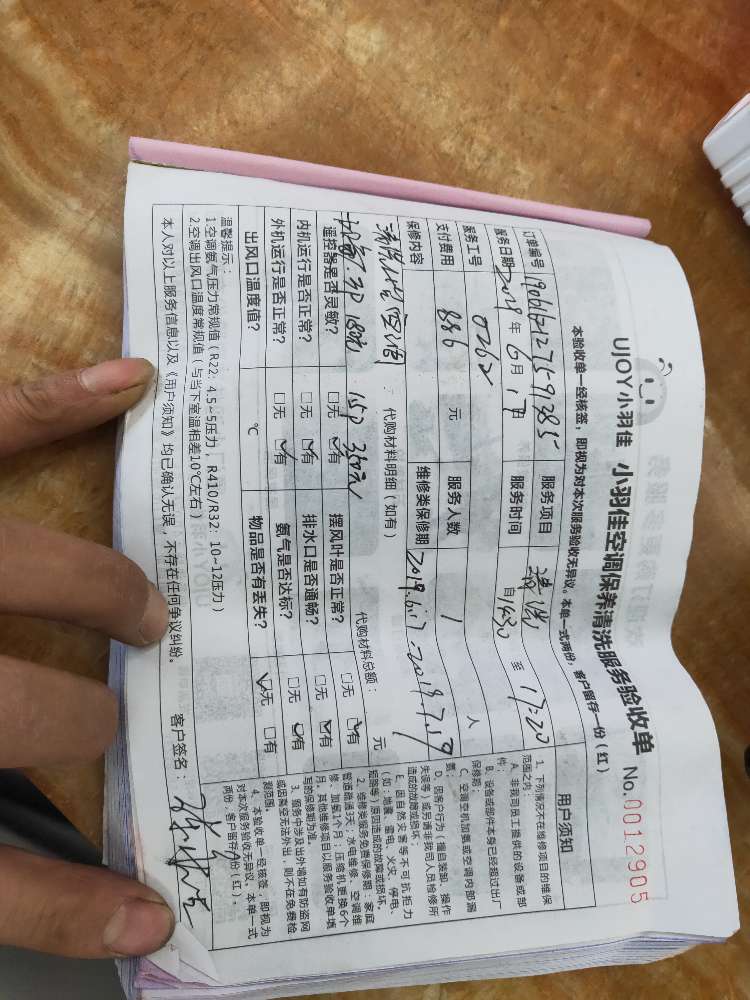 UJOY小羽佳 小羽佳空调保养清洗服务验收单 No.0012905
本验收单一经核签，即视为对本次服务验收无异议。本单一式两份，客户留存一份（红）
订单编号 服务项目 清洗
服务日期 2019年6月17日 服务时间 自1430至17:20
服务工号 0262 服务人数 1 人
支付费用 886 元 维修类保修期 2019.6.17-2019.7.19
保修内容 代购材料明细（如有） 代购材料总额： 元
遥控器是否灵敏？ □无 ☑有 摆风叶是否正常？ □无 ☑有
内机运行是否正常？ □无 ☑有 排水口是否通畅？ □无 ☑有
外机运行是否正常？ □无 ☑有 氨气是否达标？ □无 ☑有
出风口温度值？ ℃ 物品是否有丢失？ ☑无 □有
温馨提示：
1.空调氨气压力常规值（R22: 4.5~5压力，R410/R32: 10~12压力）
2.空调出风口温度常规值（与当下室温相差10℃左右）
本人对以上服务信息以及《用户须知》均已确认无误，不存在任何争议纠纷。 客户签名：
用户须知
1、下列情况不在维修项目的维保
范围之内：
A. 非我司员工提供的设备或部
件；
B. 设备或部件本身已经超过出厂
保修期；
C. 空调专机加氨或空调内部漏
氨；
D. 因客户行为（擅自装卸、操作
失误等）或另请非我司人员检修所
造成的故障或损坏；
E. 因自然灾害等不可抗拒力
（如：地震、雷电、火灾、停电、
短路等）原因造成的故障或损坏。
2、维修类服务免费保修期：家庭
管道疏通3天；水电维修、空调维
修、加氨1个月；压缩机更换6个
月；其他维修项目以服务验收单填
写的保修期为准。
3、服务中涉及出外墙如有防盗网
或因高空无法外出，则不在免费检
测范围。
4、本验收单一经核签，即视为
对本次服务验收无异议。本单一式
两份，客户留存一份（红）。